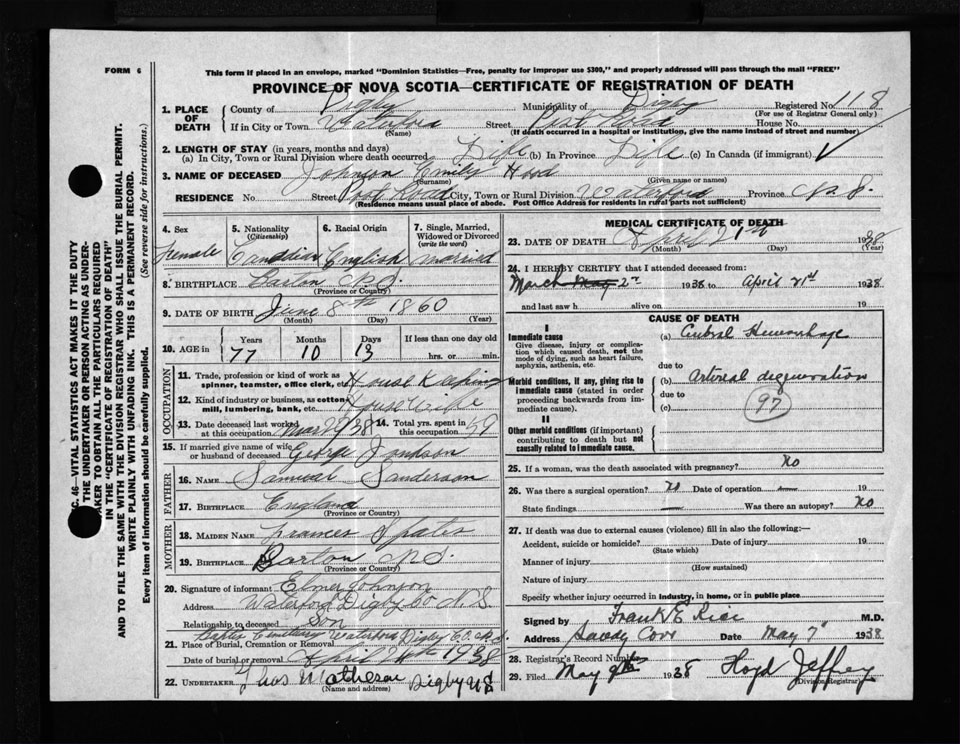 FORM 6
This form if placed in an envelope, marked "Dominion Statistics—Free, penalty for improper use $300," and properly addressed will pass through the mail "FREE"
PROVINCE OF NOVA SCOTIA—CERTIFICATE OF REGISTRATION OF DEATH
1. PLACE OF DEATH County of Digby Municipality of Digby Registered No. 118
(For use of Registrar General only)
If in City or Town Waterford Street Post Road House No.
(Name) (If death occurred in a hospital or institution, give the name instead of street and number)
2. LENGTH OF STAY (in years, months and days)
(a) In City, Town or Rural Division where death occurred Life (b) In Province Life (c) In Canada (if immigrant)
3. NAME OF DECEASED Johnson Emily
(Surname) (Given name or names)
RESIDENCE No. Street Post Road City, Town or Rural Division Waterford Province N. S.
(Residence means usual place of abode. Post Office Address for residents in rural parts not sufficient)
4. Sex Female
5. Nationality (Citizenship) Canadian
6. Racial Origin English
7. Single, Married, Widowed or Divorced (write the word) married
8. BIRTHPLACE Barton N.S.
(Province or Country)
9. DATE OF BIRTH June 8th 1860
(Month) (Day) (Year)
10. AGE in Years 77 Months 10 Days 13 If less than one day old hrs. or min.
OCCUPATION
11. Trade, profession or kind of work as spinner, teamster, office clerk, etc. House Keeping
12. Kind of industry or business, as cotton mill, lumbering, bank, etc. House Wife
13. Date deceased last worked at this occupation Mar 1938 14. Total yrs. spent in this occupation 59
15. If married give name of wife or husband of deceased George Johnson
FATHER
16. NAME Samuel Sanderson
17. BIRTHPLACE England
(Province or Country)
MOTHER
18. MAIDEN NAME Frances
19. BIRTHPLACE Barton N.S.
(Province or Country)
20. Signature of informant Elmer Johnson
Address Waterford Digby Co N.S.
Relationship to deceased Son
21. Place of Burial, Cremation or Removal Cemetery Waterford Digby CO. N.S.
Date of burial or removal April 24th 1938
22. UNDERTAKER Thos Matheson Digby NS
(Name and address)
MEDICAL CERTIFICATE OF DEATH
23. DATE OF DEATH April 21st 1938
(Month) (Day) (Year)
24. I HEREBY CERTIFY that I attended deceased from:
March May 2nd 1938 to April 21st 1938.
and last saw h alive on 19
CAUSE OF DEATH
I
Immediate cause
Give disease, injury or complication which caused death, not the mode of dying, such as heart failure, asphyxia, asthenia, etc.
(a) Cerebral Hemorrhage
due to
Morbid conditions, if any, giving rise to immediate cause (stated in order proceeding backwards from immediate cause).
Arterial degeneration
due to
(c) 97
II
Other morbid conditions (if important) contributing to death but not causally related to immediate cause.
25. If a woman, was the death associated with pregnancy? No
26. Was there a surgical operation? No Date of operation 19
State findings Was there an autopsy? No
27. If death was due to external causes (violence) fill in also the following:—
Accident, suicide or homicide? Date of injury 19
(State which)
Manner of injury
(How sustained)
Nature of injury
Specify whether injury occurred in industry, in home, or in public place
Signed by Frank E Rice M.D.
Address Sandy Cove Date May 7 1938
28. Registrar's Record Number
29. Filed May 9th 1938 Lloyd Jeffrey
(Division Registrar)
C. 46—VITAL STATISTICS ACT MAKES IT THE DUTY
THE UNDERTAKER OR PERSON ACTING AS UNDER-
AKER TO OBTAIN ALL THE PARTICULARS REQUIRED
IN THE "CERTIFICATE OF REGISTRATION OF DEATH"
AND TO FILE THE SAME WITH THE DIVISION REGISTRAR WHO SHALL ISSUE THE BURIAL PERMIT.
WRITE PLAINLY WITH UNFADING INK. THIS IS A PERMANENT RECORD.
Every item of information should be carefully supplied. (See reverse side for instructions.)